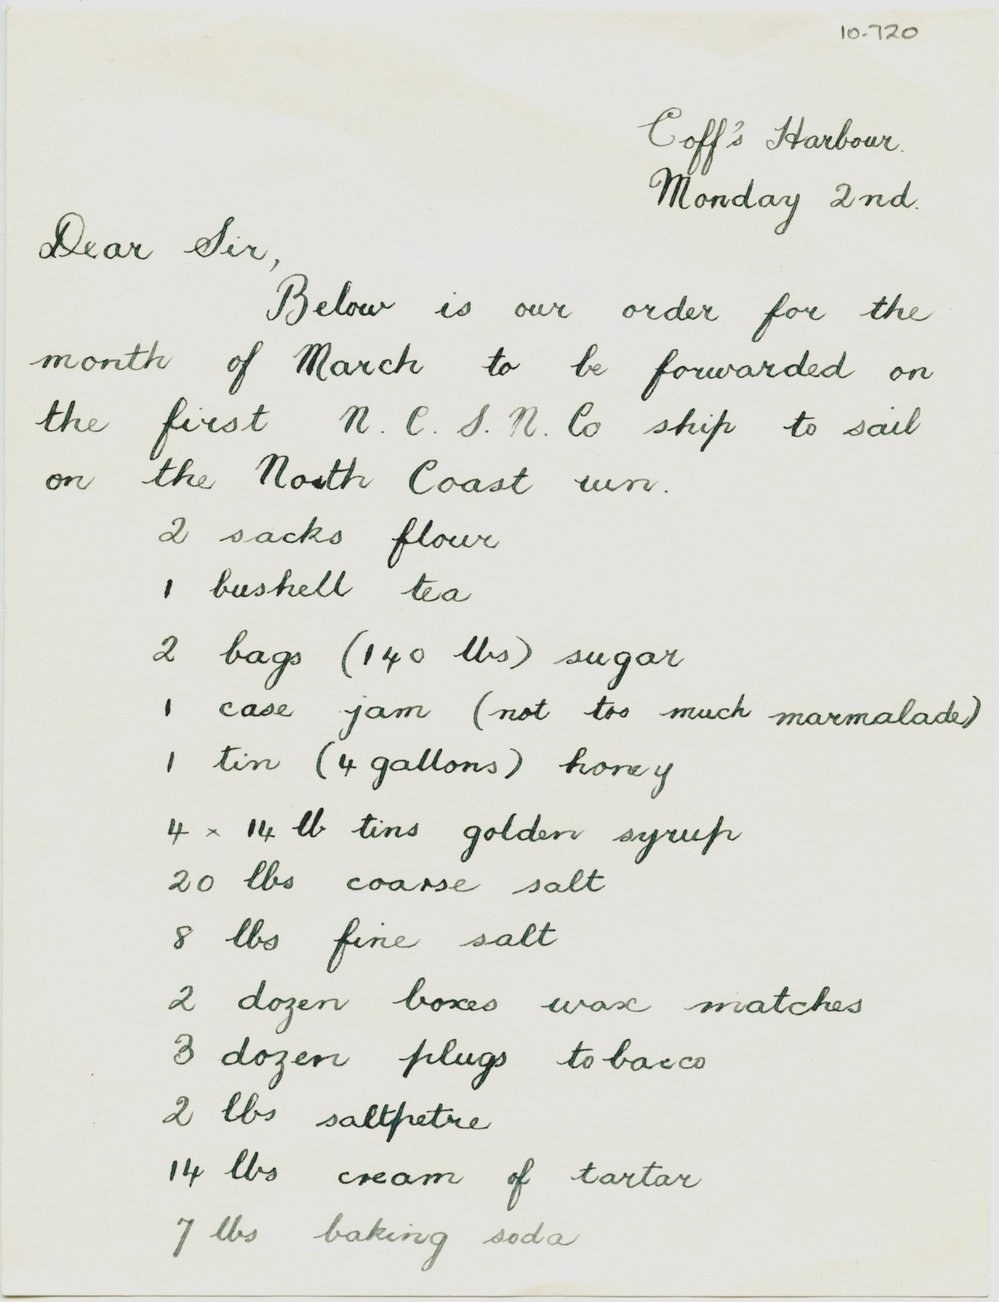 10-720
Coff's Harbour.
Monday 2nd.
Dear Sir,
Below is our order for the
month of March to be forwarded on
the first N. C. S. N. Co ship to sail
on the North Coast run.
2 sacks flour
1 bushell tea
2 bags (140 lbs) sugar
1 case jam (not too much marmalade)
1 tin (4 gallons) honey
4 x 14 lb tins golden syrup
20 lbs coarse salt
8 lbs fine salt
2 dozen boxes wax matches
3 dozen plugs tobacco
2 lbs saltpetre
14 lbs cream of tartar
7 lbs baking soda